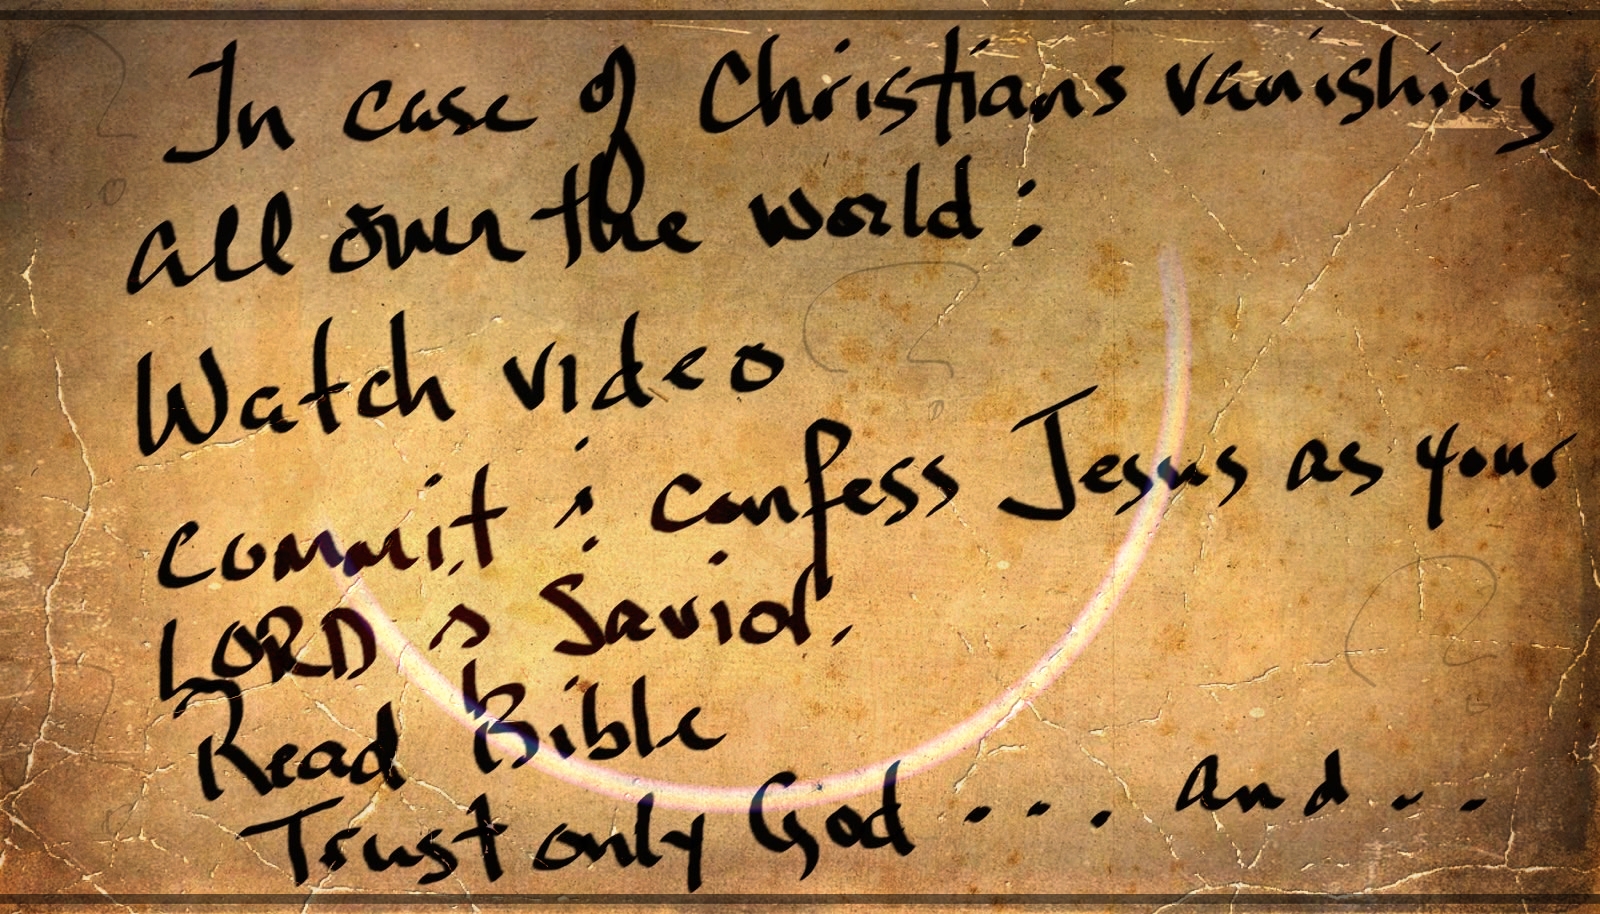 In case of Christians vanishing
all over the world :
Watch video
Commit : Confess Jesus as your
LORD & Savior.
Read Bible
Trust only God . . . and . .